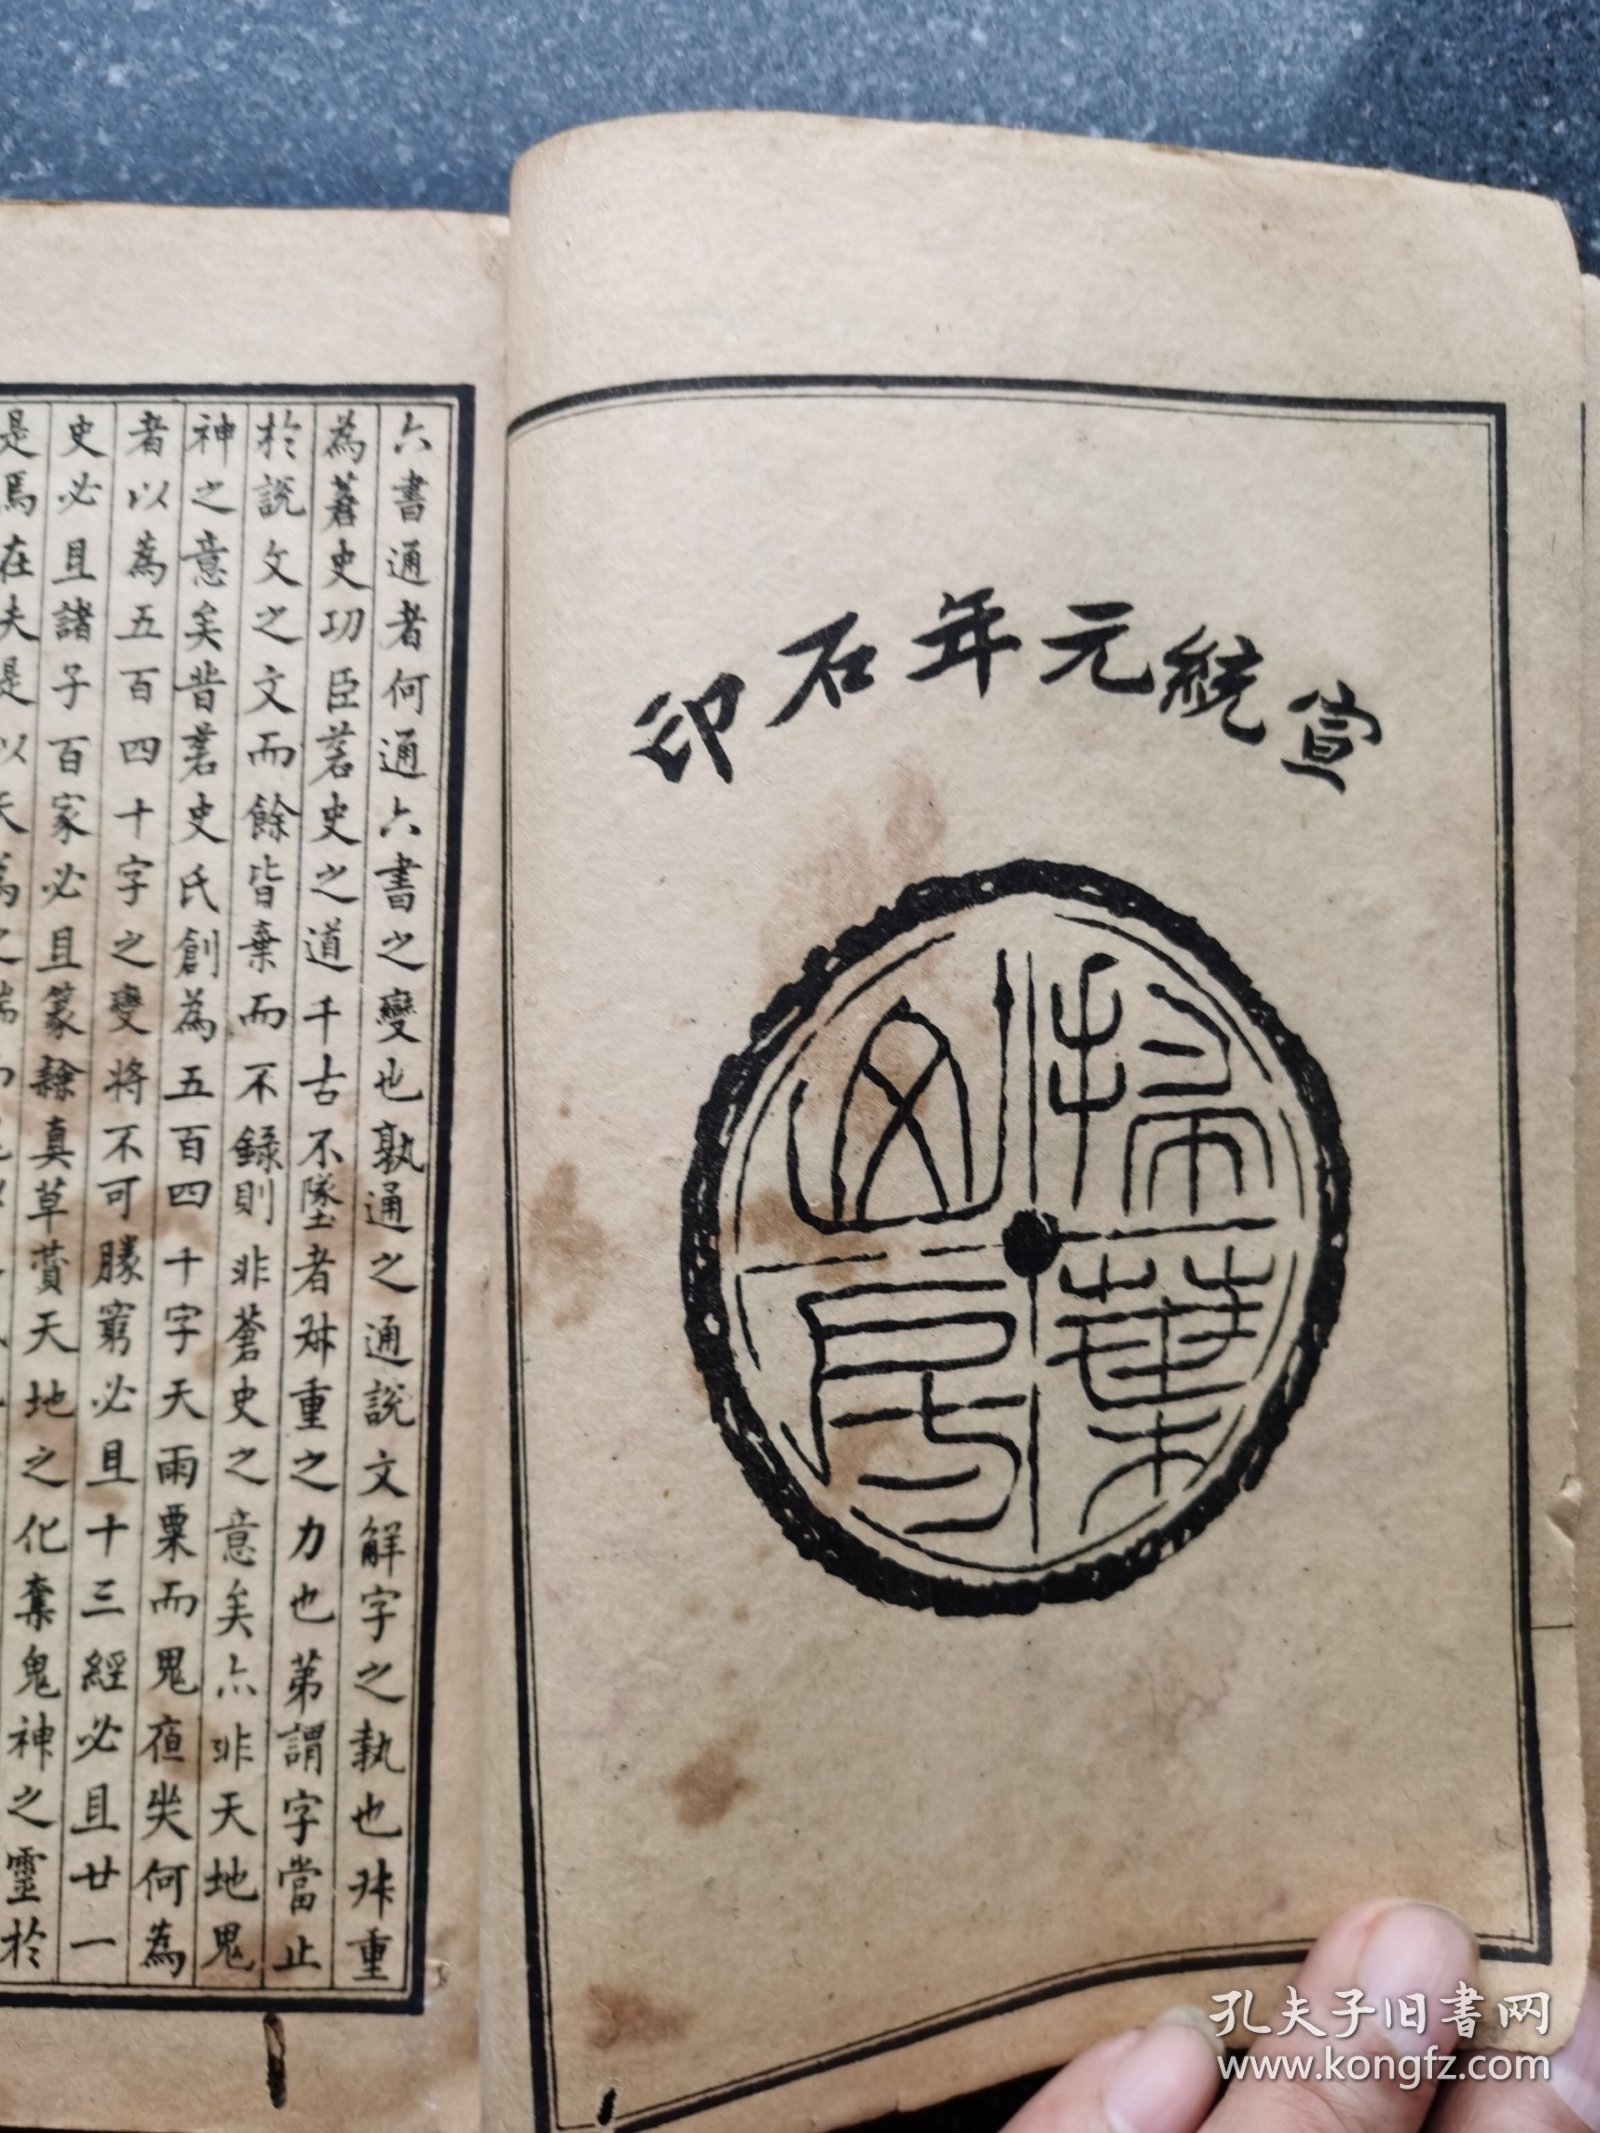 宣統元年石印
掃葉山房
六書通者何通六書之變也孰通之通說文解字之執也非重
為蒼史功臣蒼史之道千古不墜者非重之力也第謂字當止
於說文之文而餘皆棄而不錄則非蒼史之意矣亦非天地鬼
神之意矣昔蒼史氏創為五百四十字天雨粟而鬼夜哭何為
者以為五百四十字之變將不可勝窮必且十三經必且廿一
史必且諸子百家必且篆隸真草贊天地之化奪鬼神之靈於
是焉在夫是以天為之
孔夫子旧书网
www.kongfz.com